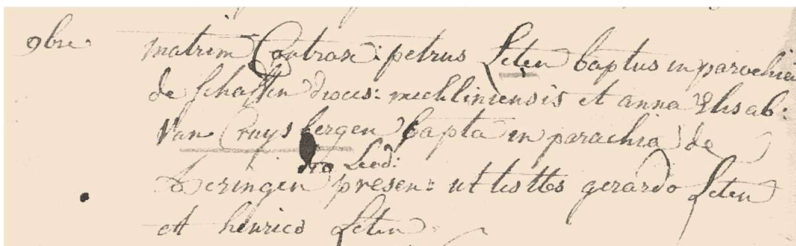 9bre matrim Contrax: petrus Leten baptus in parochia
de Schaffen dioces: mechliniensis et anna Elisab:
Van Cruysbergen bapta in parachia de
dio Leod:
Heringen presen: ut testes gerardo Leten
et henrico Leten